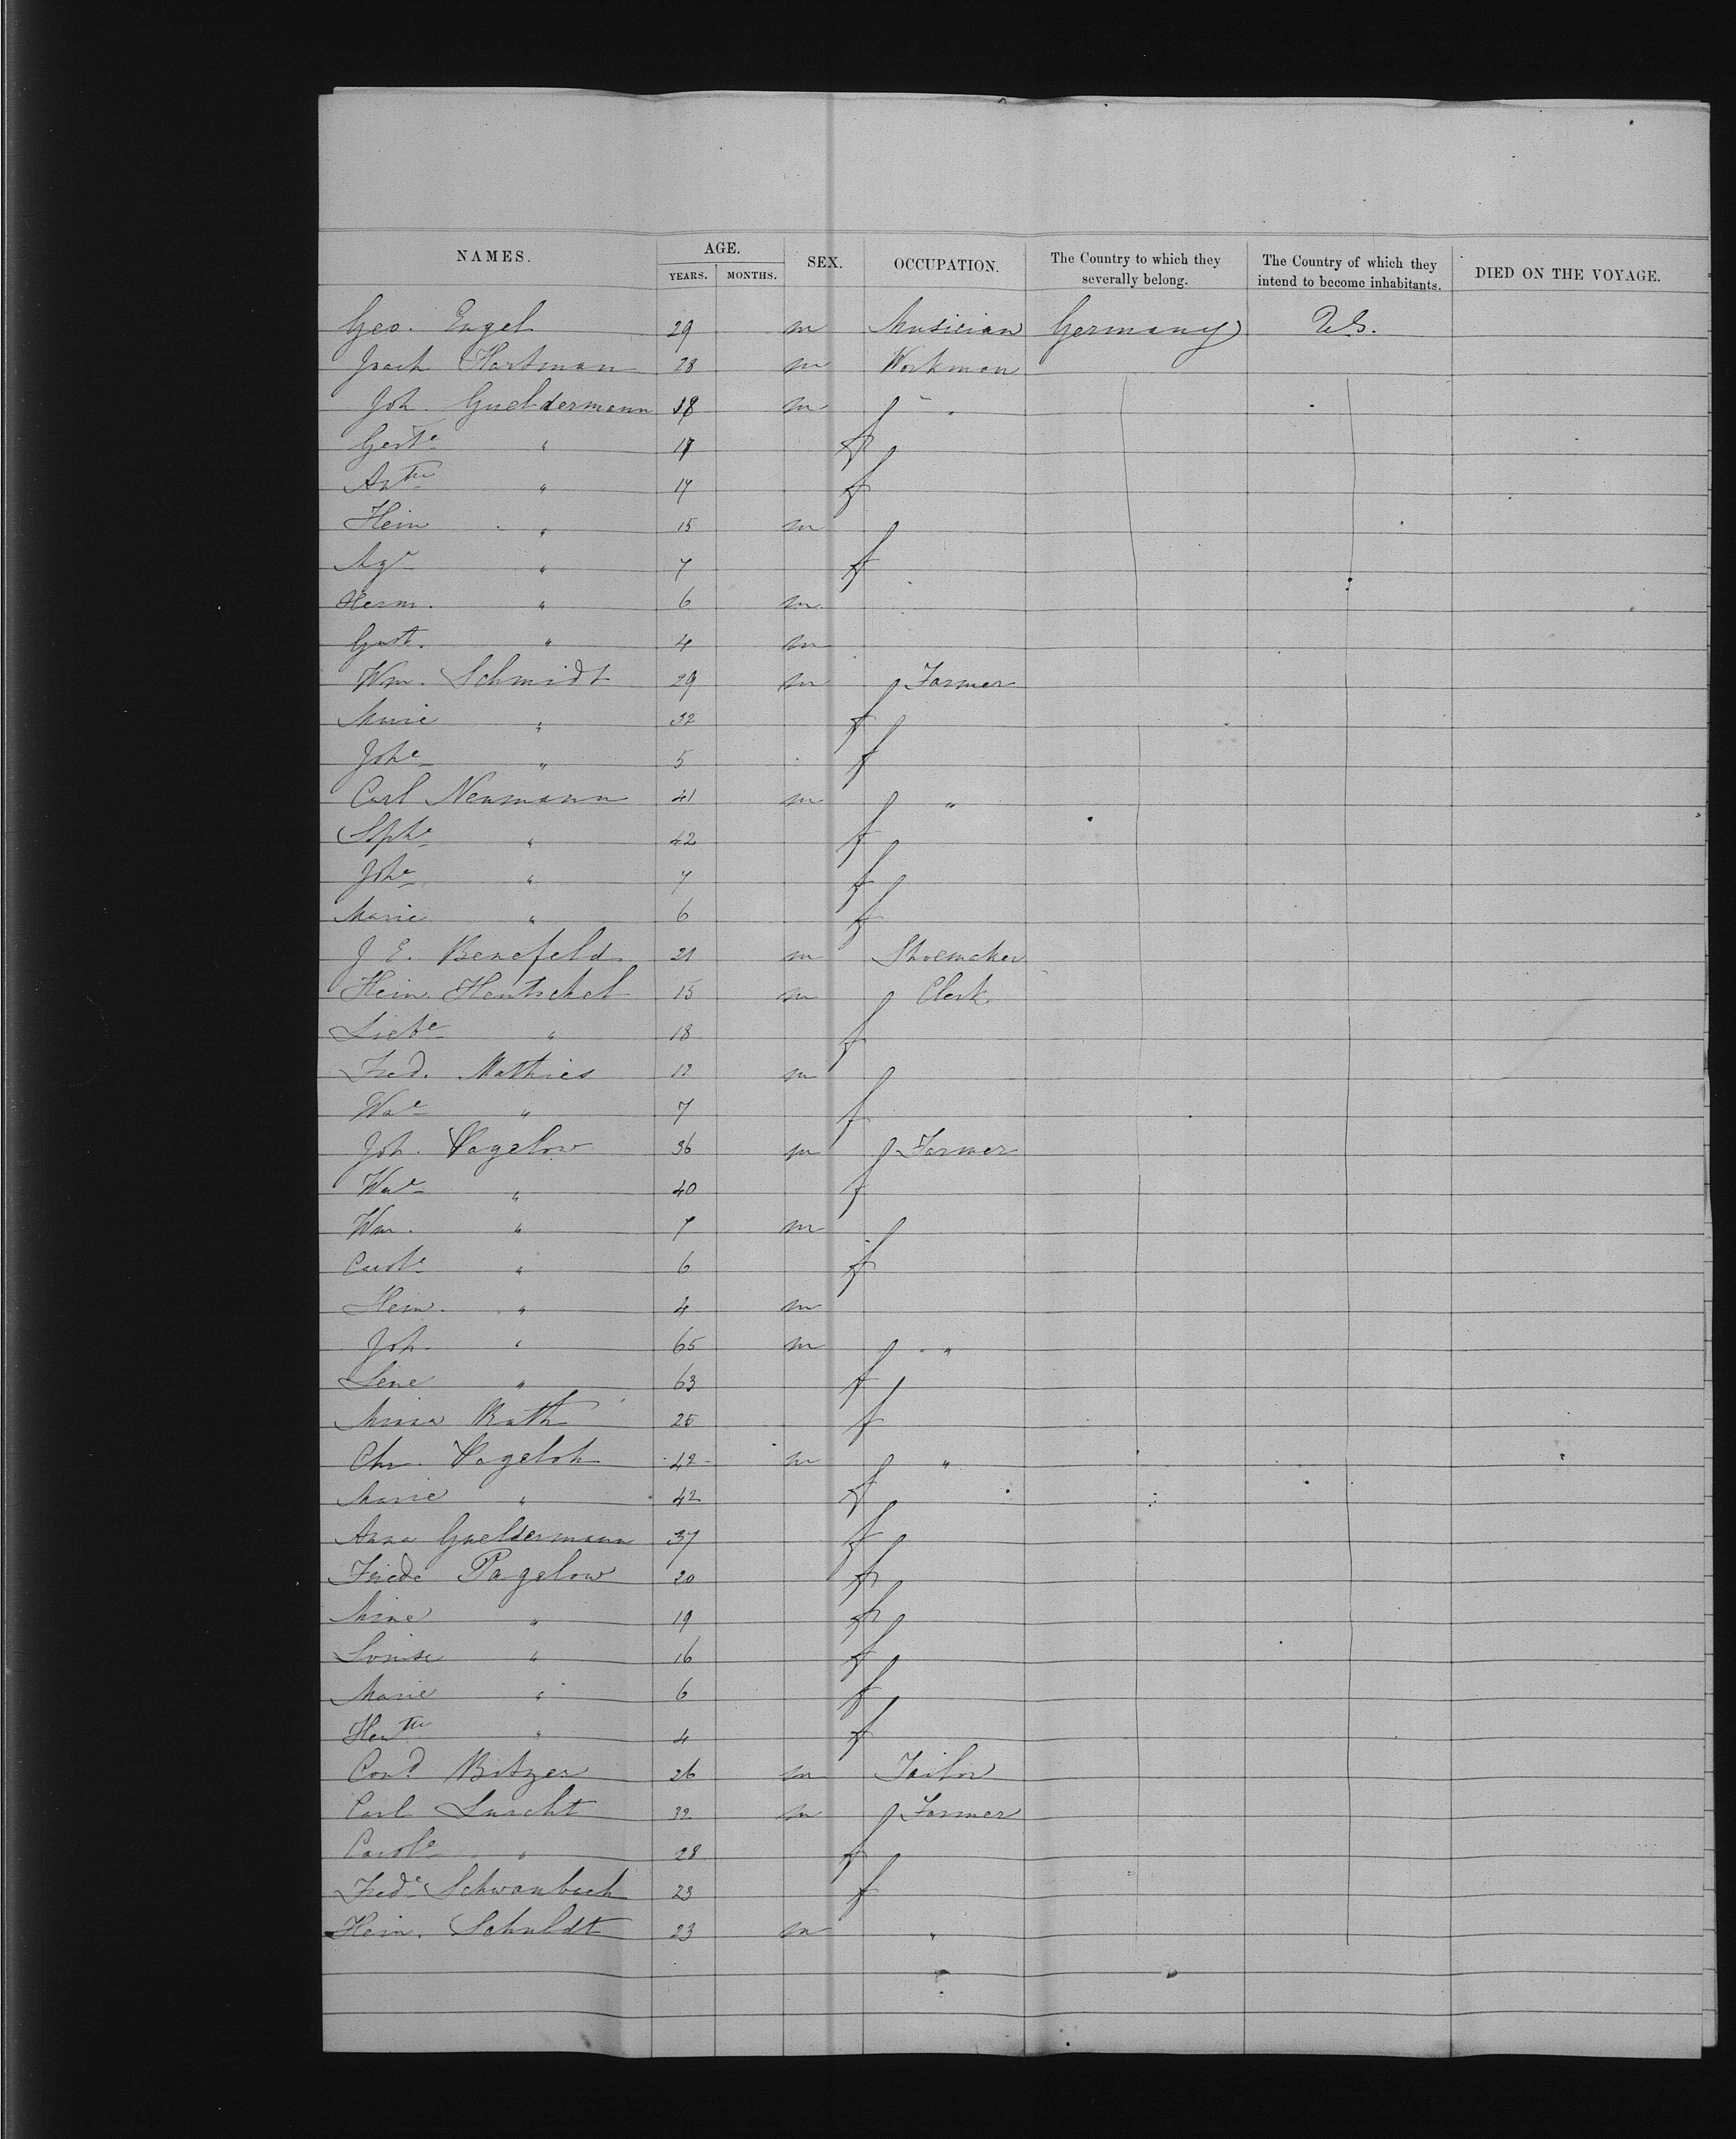 NAMES. AGE. SEX. OCCUPATION. The Country to which they severally belong. The Country of which they intend to become inhabitants. DIED ON THE VOYAGE.
YEARS. MONTHS.
Geo. Engel 29 m Musician Germany U.S.
Joach Hartman 28 m Workman
Joh. Gueldermann 38 m "
Gert^e " 17 f
" 17 f
Hein " 15 m
" 7 f
Herm. " 6 m
Gust. " 4 m
Wm. Schmidt 29 m Farmer
Marie " 32 f
Joh^e " 5 f
Carl Neumann 41 m "
Soph^e " 42 f
Joh^e " 7 f
Marie " 6 f
J E. Benefeld 21 m Shoemaker
Hein. Hentschel 15 m Clerk
" 18 f
Fred. Mathies 12 m
" 7 f
Joh. Pagelow 36 m Farmer
" 40 f
Wm. " 7 m
Carol^e " 6 f
Hein. " 4 m
Joh. " 65 m "
Lene " 63 f
Mina Rath 25 f
Chr. Pageloh 42 m "
Marie " 42 f
Anna Gueldermann 37 f
Friede Pagelow 20 f
Mine " 19 f
Louise " 16 f
Marie " 6 f
Hen^tte " 4 f
Con^d Bitzer 26 m Tailor
Carl Lurcht 32 m Farmer
Carol^e " 28 f
Fred^e Schwanbeck 23 f
Hein. Schuldt 23 m "